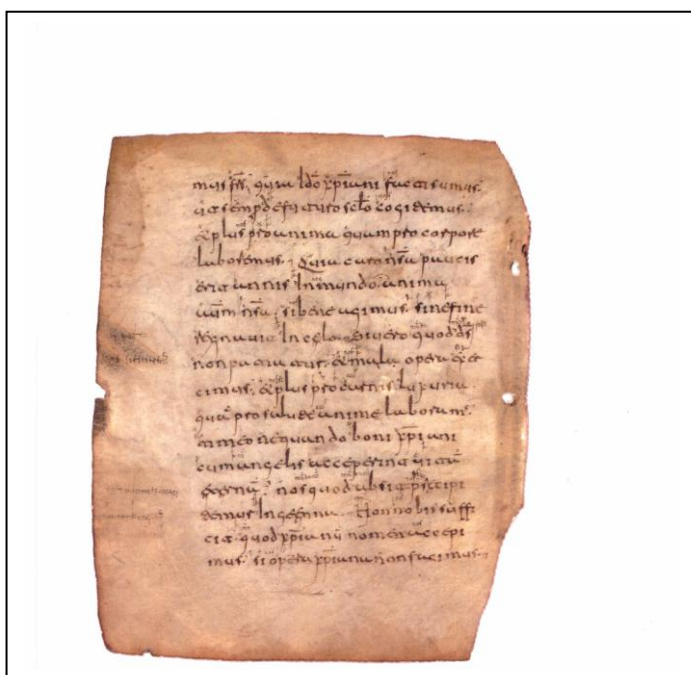 mus fr̄s. quia ideo xp̄iani facti sumus.
ut semp de futuro sclo cogitemus.
et plus pro anima quam pro corpore
laboremus. Quia caro nr̄a paucis
erit annis in mundo. anima
uero nr̄a si bene agimus. sine fine
regnauit in celo. Si uero quod ds̄
non paciatur. et mala opera exer
cimus. et plus pro carnis luxuria
quā pro salute anime laboram̄.
timeo ne quando boni xp̄iani
cum angelis acceperint uitā
eternā. nos quod absit p̄cipi
temur in gehenna. Non nobis suffi
cit quod xp̄ianū nomen accepi
mus. si opera xp̄iana non facimus.